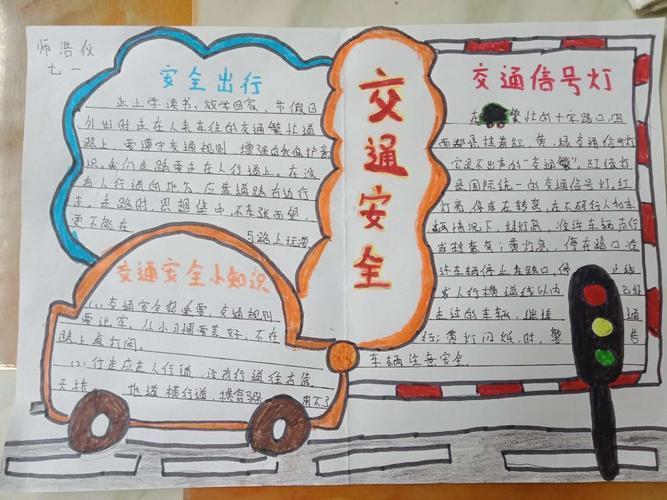 师浩仪
七一
安全出行
早上学读书、放学回家、节假日
外出时走在人来车往的交通繁忙道
路上,要遵守交通规则,增强自我保护意
识。我们走路要走在人行道上。在没
有人行道的地方,应靠道路右边行
走。走路时,思想集中,不东张西望,
更不能在 与路人玩耍
交通安全小知识
(1)交通安全很重要,交通规则
要记牢,从小习惯要养好,不在
路上
(2)行走应走人行道,没有行道往右靠
天桥 地道横行道,横穿马路 不了
交通安全
交通信号灯
在 繁忙的十字路口,四
面都悬挂着红、黄、绿交通信号灯
它是不出声的“交通警”。红绿灯
是国际统一的交通信号灯。红
灯亮,停或右转弯,在不碍行人和车
辆情况下,绿灯亮,准许车辆直行
或转弯;黄灯亮,停在路口
许车辆停止 路口,停 止线
或人行横道线以内
走过的车辆,继续 通
行;黄灯闪烁时,警
车辆注意安全。